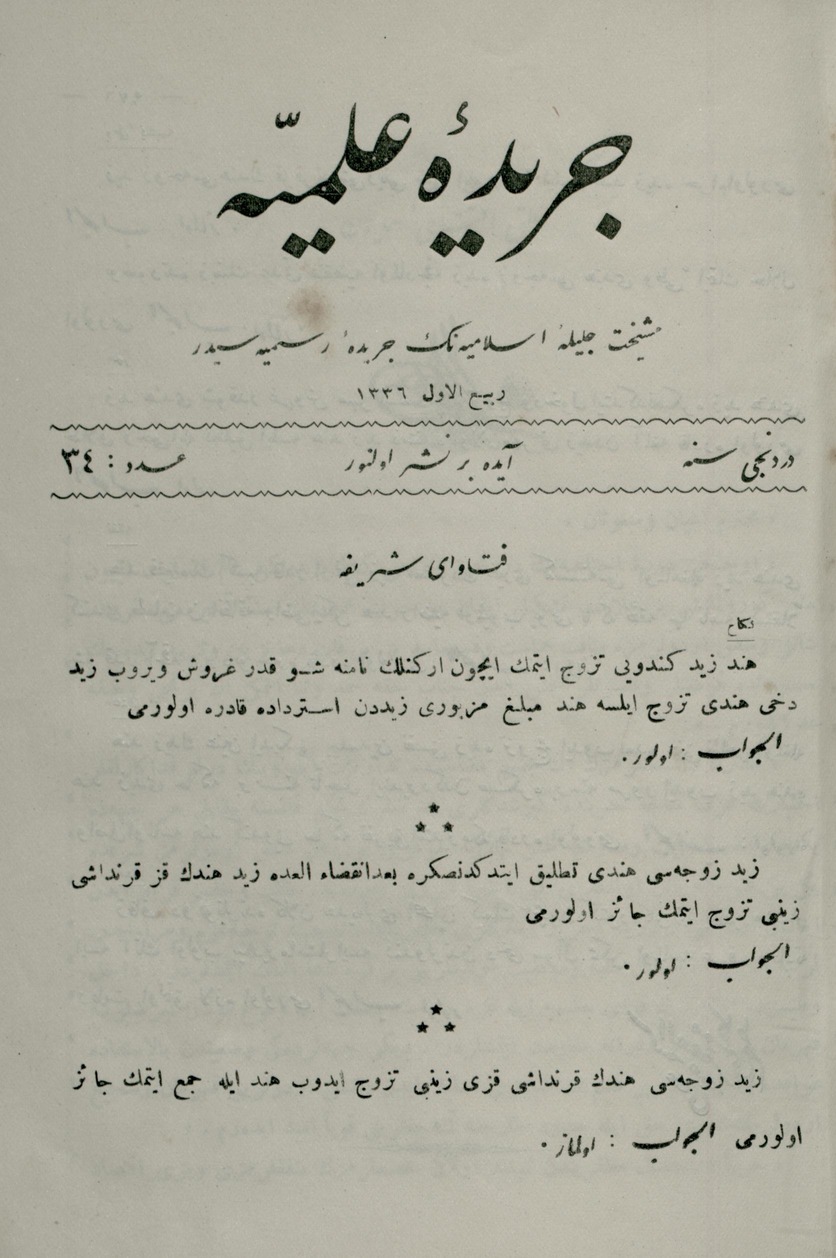 جريدۀ علميّه
مشيخت جليلۀ اسلاميه نك جريدۀ رسميه سيدر
ربيع الاول ١٣٣٦
دردنجى سنه
آيده بر نشر اولنور
عدد : ٣٤
فتاواى شريفه
نكاح
هند زيد كندويى تزوج ايتمك ايچون اركنلك نامنه شو قدر غروش ويروب زيد
دخى هندى تزوج ايلسه هند مبلغ مزبورى زيددن استرداده قادره اولورمى
الجواب : اولور.
زيد زوجه‌سى هندى تطليق ايتدكدنصكره بعدانقضاء العده زيد هندك قز قرنداشى
زينبى تزوج ايتمك جائز اولورمى
الجواب : اولور.
زيد زوجه‌سى هندك قرنداشى قزى زينبى تزوج ايدوب هند ايله جمع ايتمك جائز
اولورمى الجواب : اولماز.